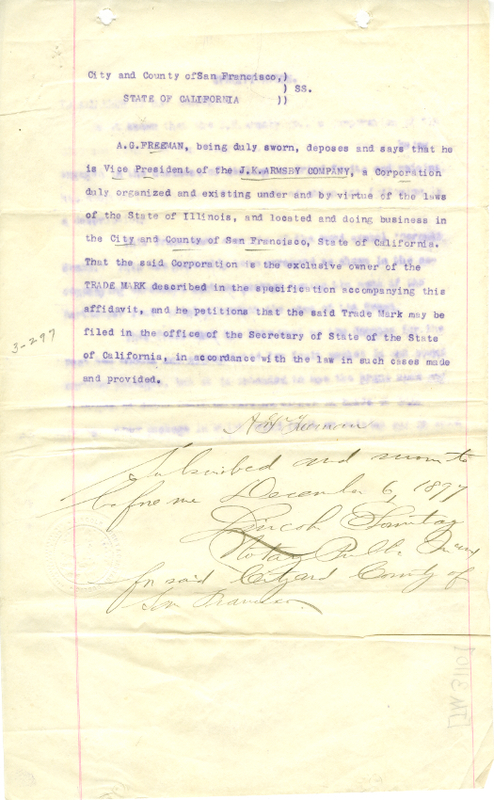 City and County ofSan Francisco,)
) SS.
STATE OF CALIFORNIA ))
A.G.FREEMAN, being duly sworn, deposes and says that he
is Vice President of the J.K.ARMSBY COMPANY, a Corporation
duly organized and existing under and by virtue of the laws
of the State of Illinois, and located and doing business in
the City and County of San Francisco, State of California.
That the said Corporation is the exclusive owner of the
TRADE MARK described in the specification accompanying this
affidavit, and he petitions that the said Trade Mark may be
filed in the office of the Secretary of State of the State
of California, in accordance with the law in such cases made
and provided.
3-297
A G Freeman
Subscribed and sworn to
before me December 6, 1897
Lincoln Sonntag
Notary Public In and
for said City and County of
San Francisco.